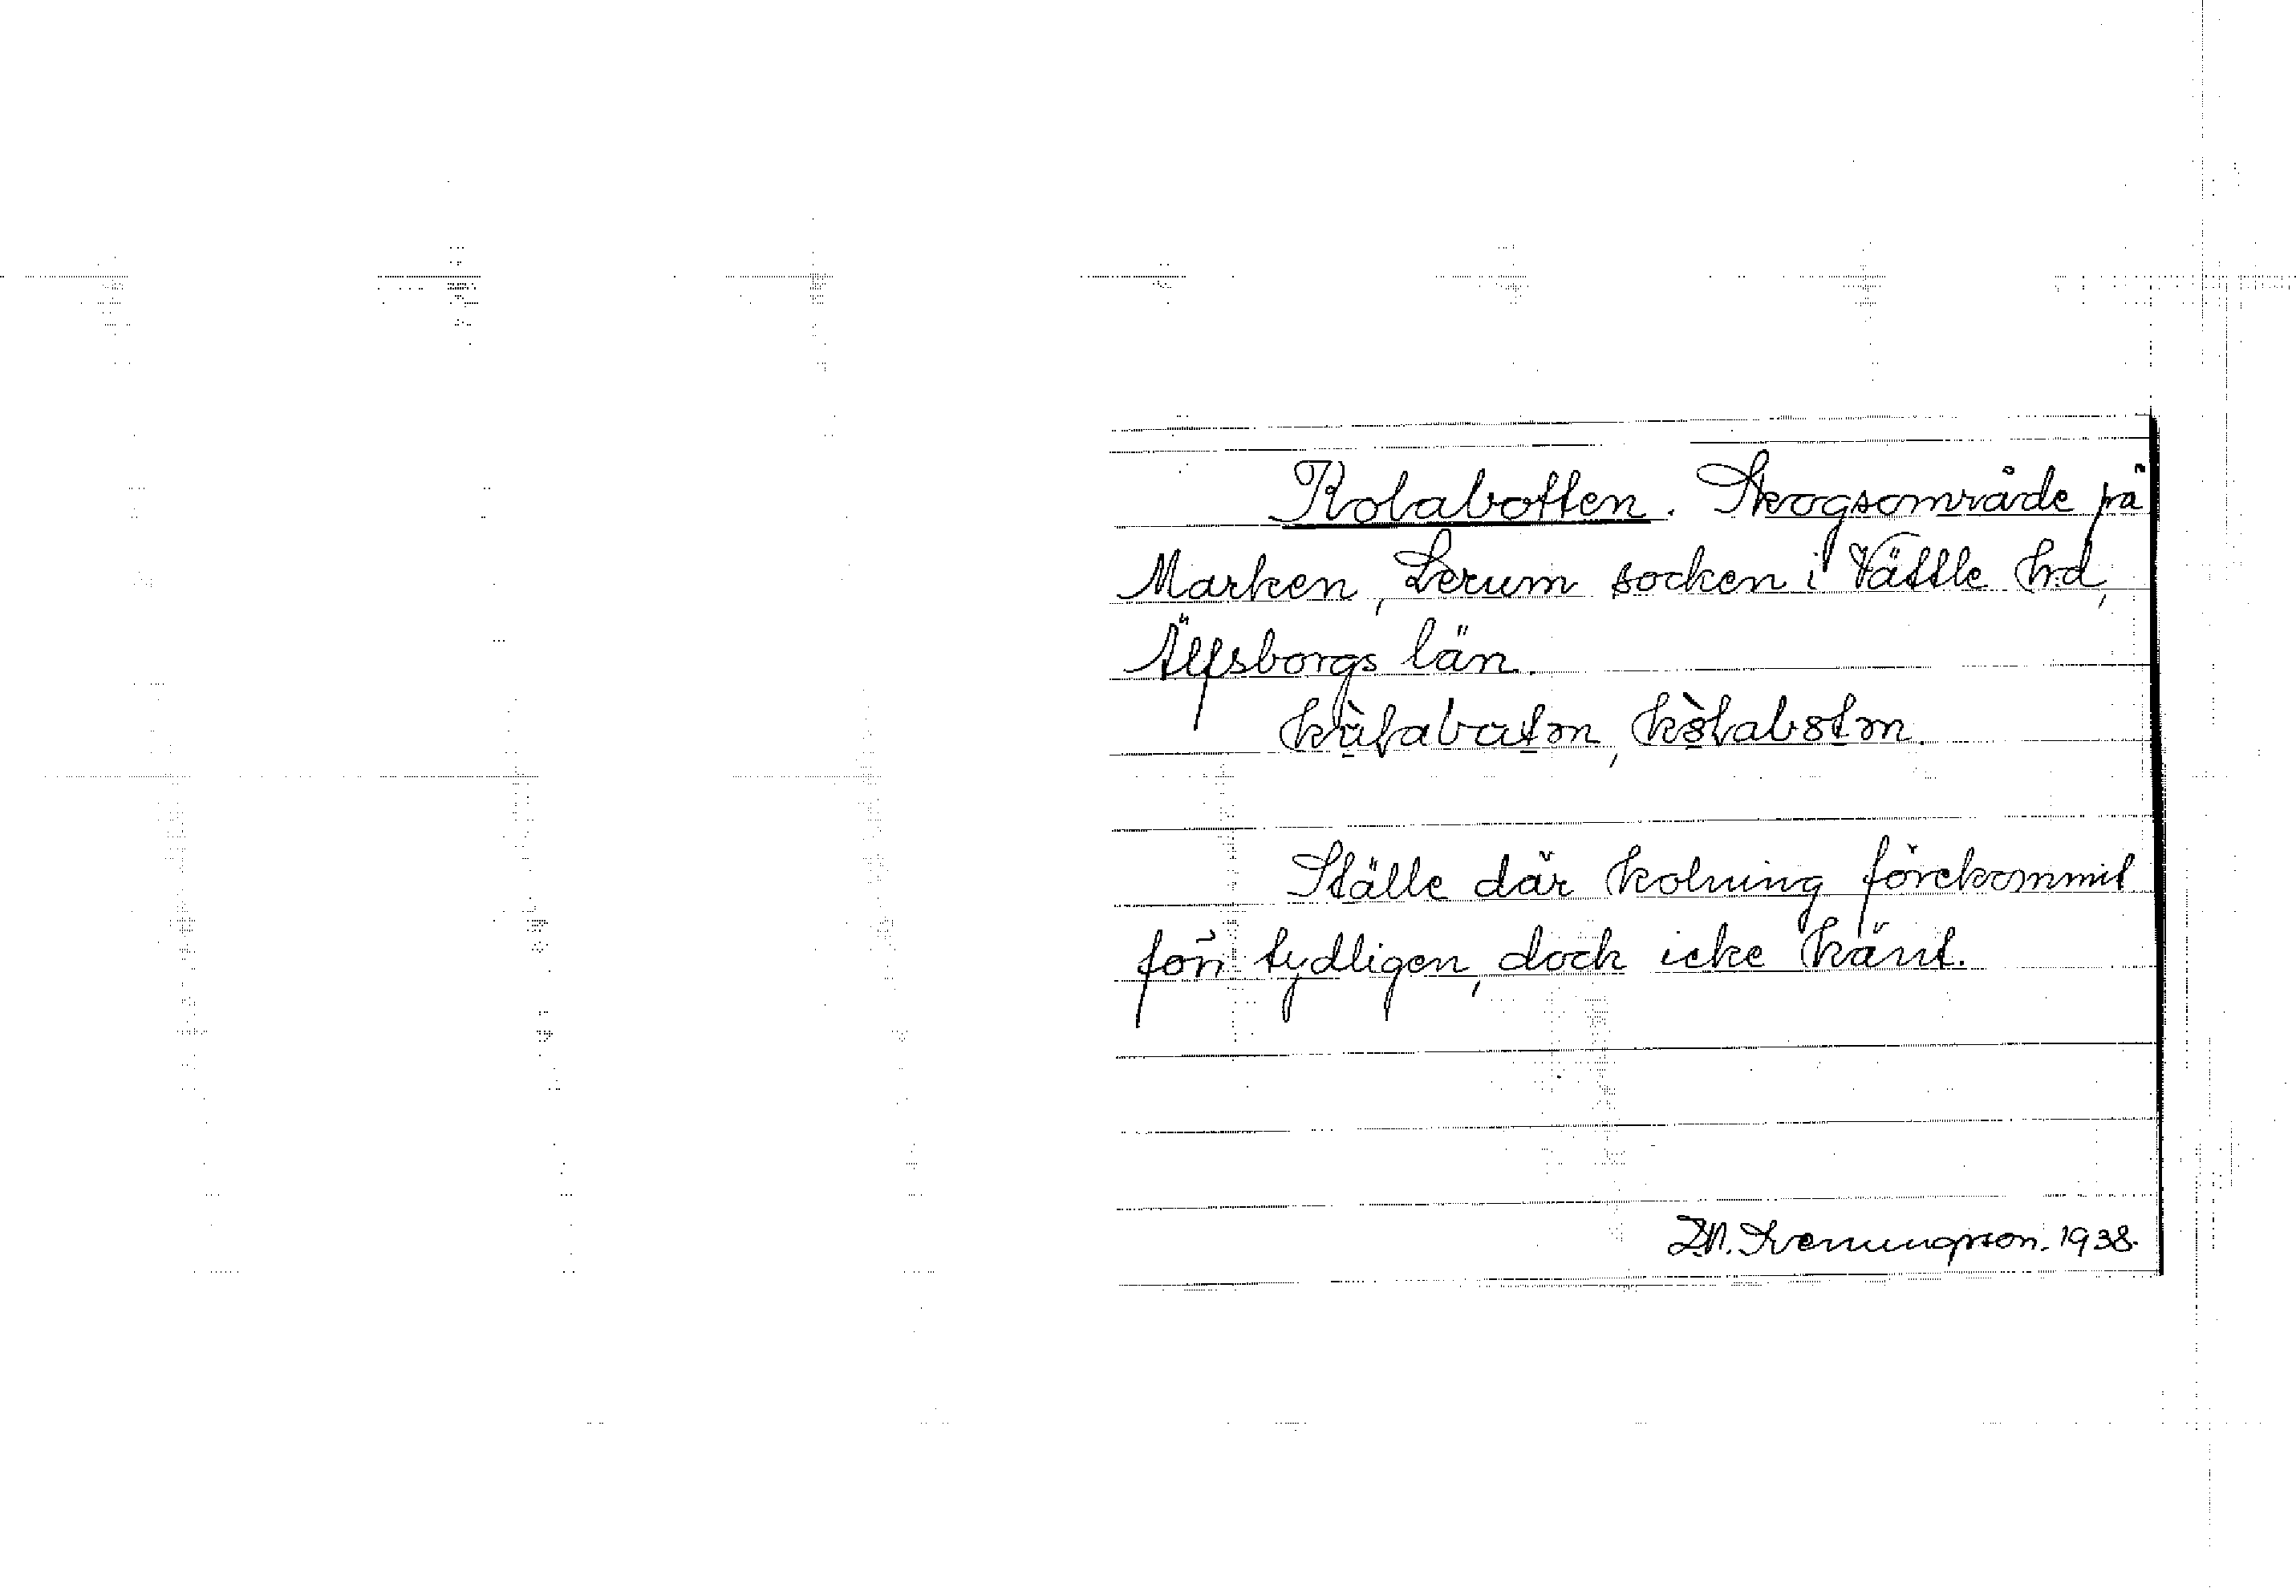 Kolabotten. Skogsområde på
Marken, Lerum socken i Vättle hd,
Älfsborgs län.
Ställe där kolning förekommit
förr tydligen, dock icke känt.
1938.